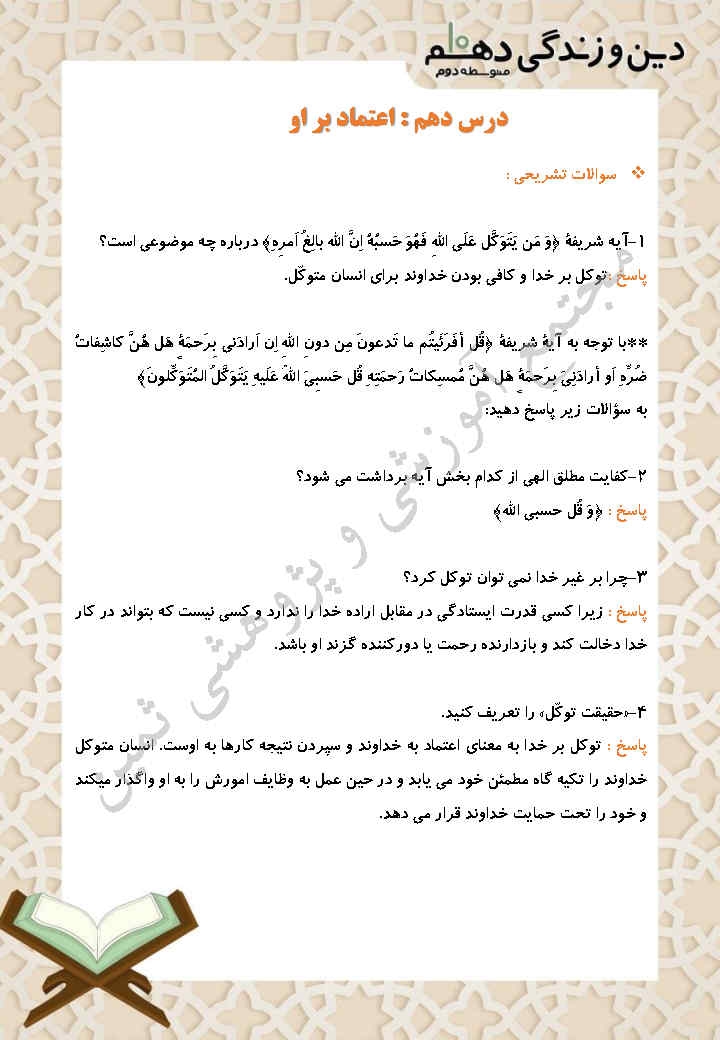 دین و زندگی دهم ۱۰
متوسطه دوم
درس دهم : اعتماد بر او
❖ سوالات تشریحی :
۱-آیه شریفهٔ ﴿وَ مَن یَتَوَکَّل عَلَی اللهِ فَهُوَ حَسبُهُ اِنَّ الله بالِغُ اَمرِهِ﴾ درباره چه موضوعی است؟
پاسخ :توکل بر خدا و کافی بودن خداوند برای انسان متوکّل.
**با توجه به آیهٔ شریفهٔ ﴿قُل أفَرَئَیتُم ما تَدعونَ مِن دونِ اللهِ اِن اَرادَنی بِرَحمَةٍ هَل هُنَّ کاشِفاتُ
ضُرِّهِ اَو أرادَنِیَ بِرَحمَةٍ هَل هُنَّ مُمسِکاتُ رَحمَتِهِ قُل حَسبِیَ اللهُ عَلَیهِ یَتَوَکَّلُ المُتَوَکِّلونَ﴾
به سؤالات زیر پاسخ دهید:
۲-کفایت مطلق الهی از کدام بخش آیه برداشت می شود؟
پاسخ : ﴿وَ قُل حسبی الله﴾
۳-چرا بر غیر خدا نمی توان توکل کرد؟
پاسخ : زیرا کسی قدرت ایستادگی در مقابل اراده خدا را ندارد و کسی نیست که بتواند در کار
خدا دخالت کند و بازدارنده رحمت یا دورکننده گزند او باشد.
۴-«حقیقت توکّل» را تعریف کنید.
پاسخ : توکل بر خدا به معنای اعتماد به خداوند و سپردن نتیجه کارها به اوست. انسان متوکل
خداوند را تکیه گاه مطمئن خود می یابد و در حین عمل به وظایف امورش را به او واگذار میکند
و خود را تحت حمایت خداوند قرار می دهد.
مجتمع آموزشی و پژوهشی ثمین